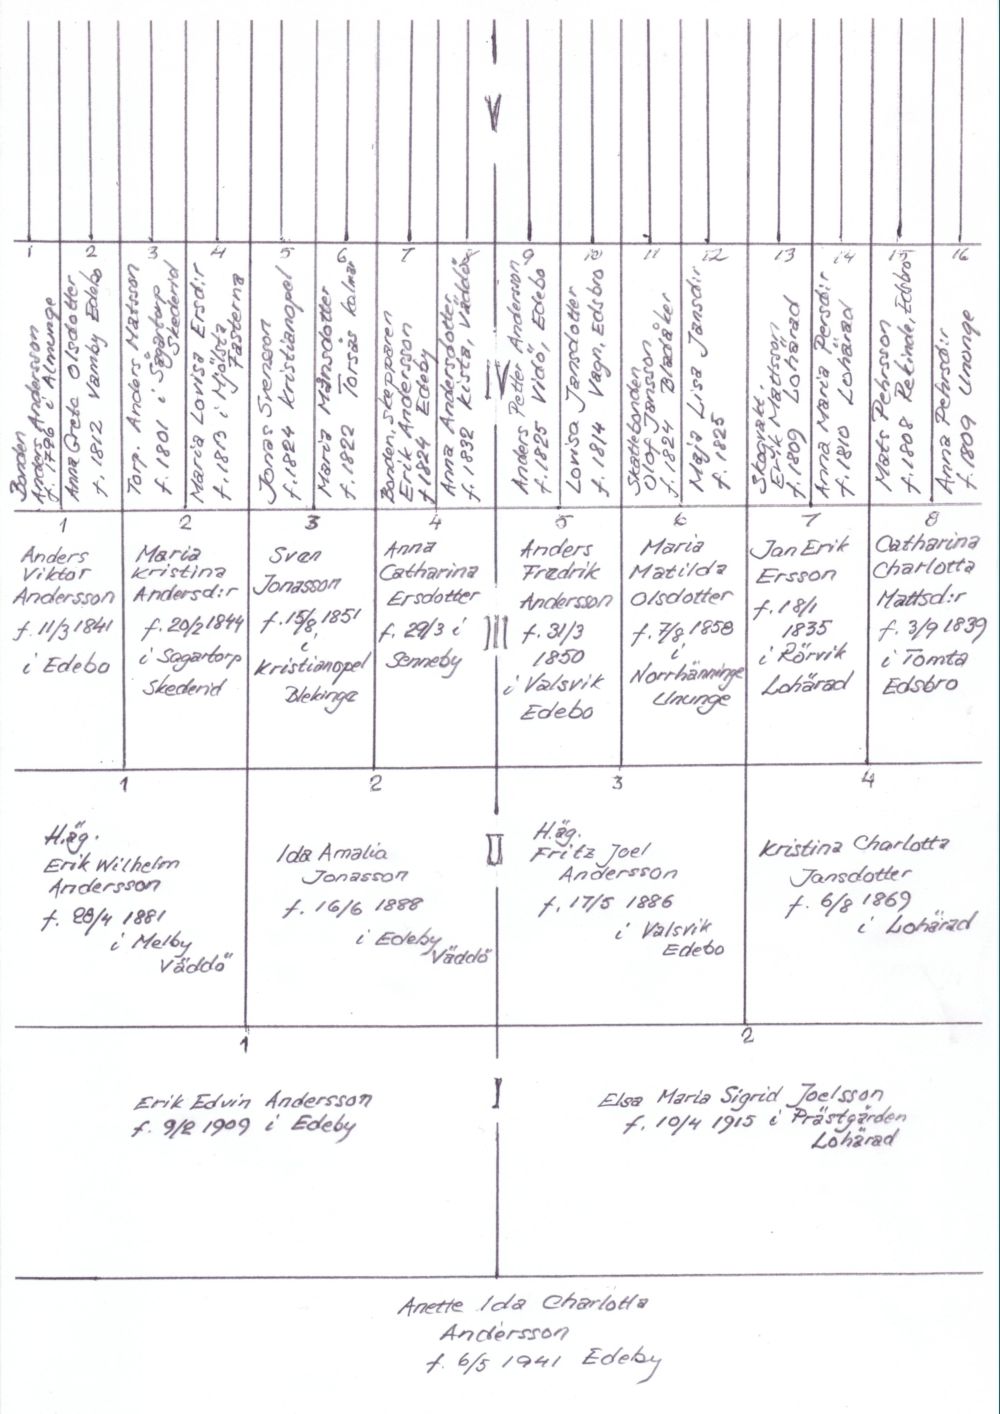 V
1 2 3 4 5 6 7 8 9 10 11 12 13 14 15 16
Bonden
Anders Andersson
f. 1796 i Almunge
Anna Greta Olsdotter
f. 1812 Vamby Edebo
Torp. Anders Matsson
f. 1801 i Sågartorp
Skederid
Maria Lovisa Ersd:r
f. 1813 i Mjölsta
Fasterna
Jonas Svensson
f. 1824 Kristianopel
Maria Månsdotter
f. 1822 Torsås Kalmar
Bonden, Skepparen
Erik Andersson
f. 1824 Edeby
Anna Andersdotter
f. 1832 Krista, Väddö
IV
Anders Petter Andersson
f. 1825 Vidö, Edebo
Lovisa Jansdotter
f. 1814 Vagn, Edsbro
Skattebonden
Olof Jansson
f. 1824 Bladåker
Maja Lisa Jansd:r
f. 1825
Skogvakt.
Erik Mattsson
f. 1809 Lohärad
Anna Maria Persd:r
f. 1810 Lohärad
Mats Pehrsson
f. 1808 Rekinde, Edsbro
Anna Pehrsd:r
f. 1809 Ununge
1 2 3 4 5 6 7 8
Anders
Viktor
Andersson
f. 11/3 1841
i Edebo
Maria
Kristina
Andersd:r
f. 20/2 1844
i Sagartorp
Skederid
Sven
Jonasson
f. 15/8 1851
i
Kristianopel
Blekinge
Anna
Catharina
Ersdotter
f. 29/3 i
Senneby
III
Anders
Fredrik
Andersson
f. 31/3
1850
i Valsvik
Edebo
Maria
Matilda
Olsdotter
f. 7/8 1858
i
Norrhänninge
Ununge
Jan Erik
Ersson
f. 18/1
1835
i Rörvik
Lohärad
Catharina
Charlotta
Mattsd:r
f. 3/9 1839
i Tomta
Edsbro
1 2 3 4
H.äg.
Erik Wilhelm
Andersson
f. 28/4 1881
i Melby
Väddö
Ida Amalia
Jonasson
f. 16/6 1888
i Edeby
Väddö
II
H.äg.
Fritz Joel
Andersson
f. 17/5 1886
i Valsvik
Edebo
Kristina Charlotta
Jansdotter
f. 6/8 1869
i Lohärad
1 2
Erik Edvin Andersson
f. 9/2 1909 i Edeby
I
Elsa Maria Sigrid Joelsson
f. 10/4 1915 i Prästgården
Lohärad
Anette Ida Charlotta
Andersson
f. 6/5 1941 Edeby